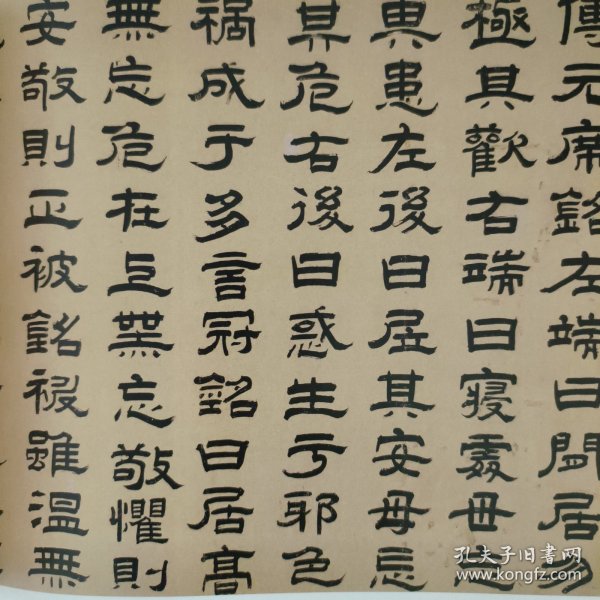 傅元席銘左端曰閒居勿
極其歡右端曰寢處毋忘
其患左後曰居其安毋忘
其危右後曰惑生于邪色
禍成于多言冠銘曰居高
無忘危在上無忘敬懼則
安敬則正被銘被雖溫無
孔夫子旧书网
www.kongfz.com